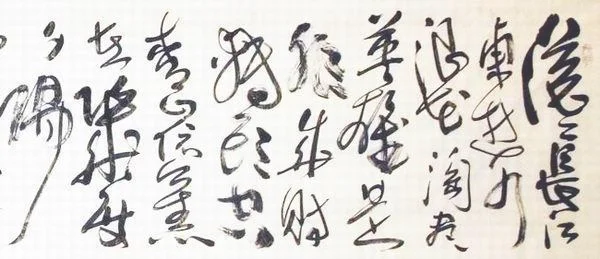 滚滚長江
東逝水
浪花淘尽
英雄是
非成敗
轉頭空
青山依舊
在幾度
夕陽